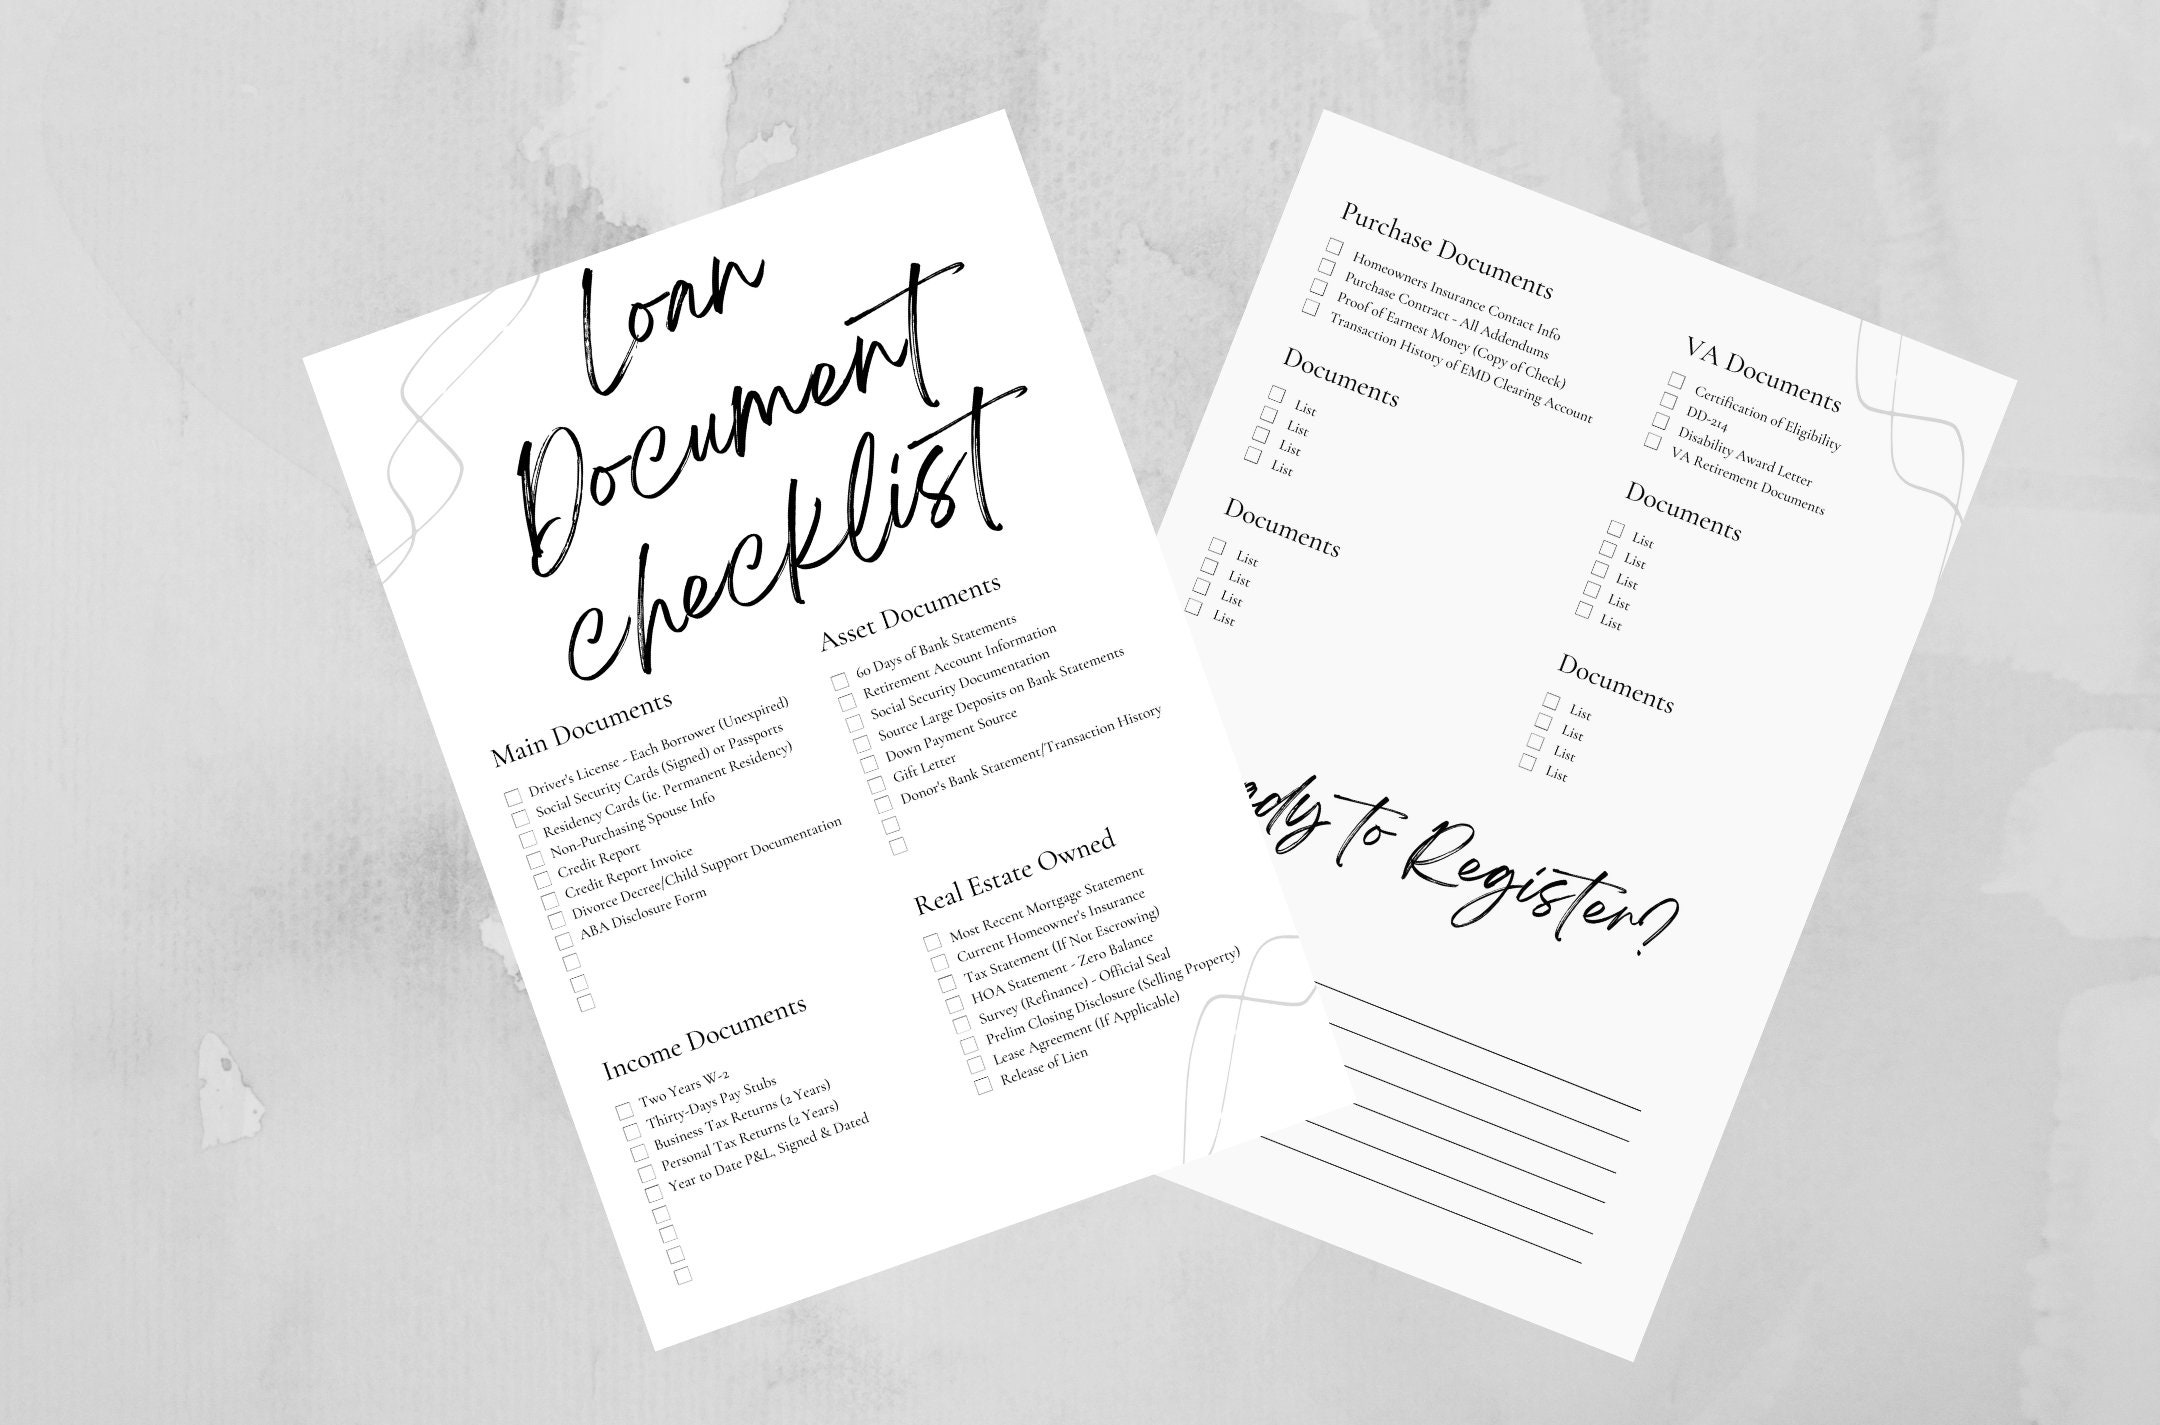 Loan
Document
Checklist
Main Documents
Driver's License - Each Borrower (Unexpired)
Social Security Cards (Signed) or Passports
Residency Cards (ie. Permanent Residency)
Non-Purchasing Spouse Info
Credit Report
Credit Report Invoice
Divorce Decree/Child Support Documentation
ABA Disclosure Form
Income Documents
Two Years W-2
Thirty-Days Pay Stubs
Business Tax Returns (2 Years)
Personal Tax Returns (2 Years)
Year to Date P&L, Signed & Dated
Asset Documents
60 Days of Bank Statements
Retirement Account Information
Social Security Documentation
Source Large Deposits on Bank Statements
Down Payment Source
Gift Letter
Donor's Bank Statement/Transaction History
Real Estate Owned
Most Recent Mortgage Statement
Current Homeowner's Insurance
Tax Statement (If Not Escrowing)
HOA Statement - Zero Balance
Survey (Refinance) - Official Seal
Prelim Closing Disclosure (Selling Property)
Lease Agreement (If Applicable)
Release of Lien
Purchase Documents
Homeowners Insurance Contact Info
Purchase Contract - All Addendums
Proof of Earnest Money (Copy of Check)
Transaction History of EMD Clearing Account
Documents
List
List
List
List
Documents
List
List
List
List
VA Documents
Certification of Eligibility
DD-214
Disability Award Letter
VA Retirement Documents
Documents
List
List
List
List
List
Documents
List
List
List
List
to Register?